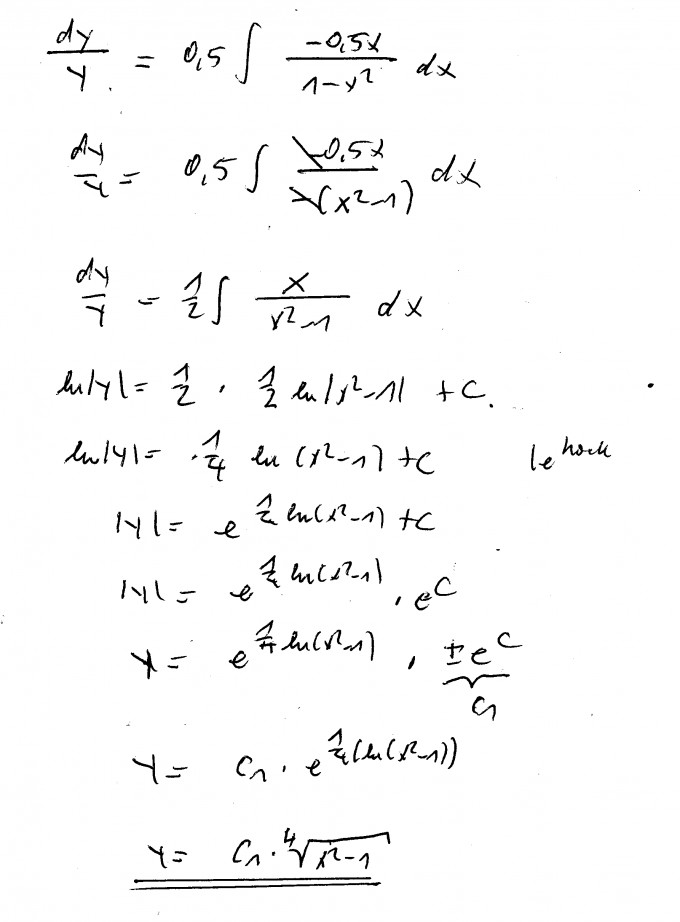 dy/y = 0,5 ∫ -0,5x/(1-x²) dx
dy/y = 0,5 ∫ -0,5x/-(x²-1) dx
dy/y = 1/2 ∫ x/(x²-1) dx
ln|y| = 1/2 · 1/2 ln|x²-1| + C.
ln|y| = 1/4 ln (x²-1) + C | e hoch
|y| = e^(1/4 ln(x²-1) + C
|y| = e^(1/4 ln(x²-1)) · e^C
y = e^(1/4 ln(x²-1)) · ±e^C
C₁
y = C₁ · e^(1/4(ln(x²-1)))
y = C₁ · ⁴√(x²-1)